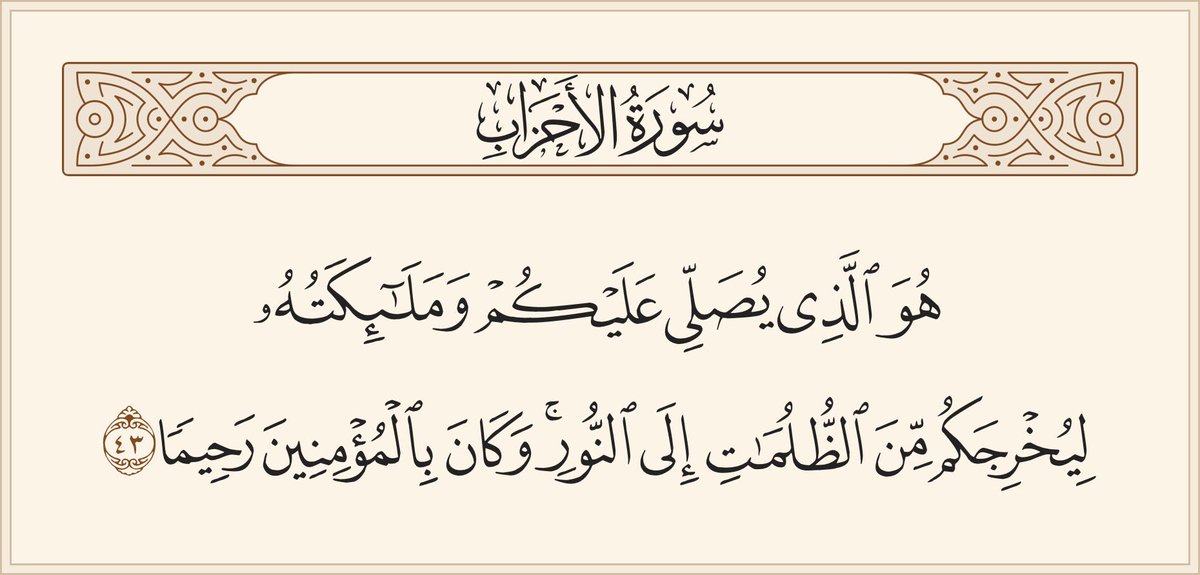 سُورَةُ الأَحْزَابِ
هُوَ ٱلَّذِى يُصَلِّى عَلَيْكُمْ وَمَلَـٰٓئِكَتُهُۥ
لِيُخْرِجَكُم مِّنَ ٱلظُّلُمَـٰتِ إِلَى ٱلنُّورِ ۚ وَكَانَ بِٱلْمُؤْمِنِينَ رَحِيمًا ٤٣